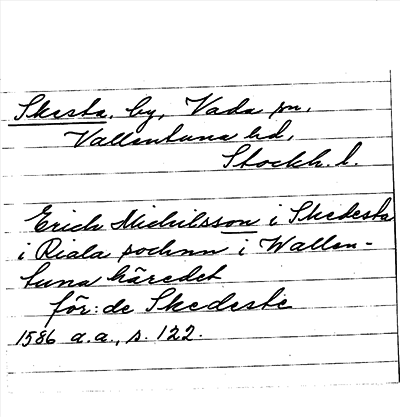 Skesta, by, Vada sn,
Vallentuna hd,
Stockh. l.
Erich Michilsson i Skedesta
i Riala sochnn i Wallen-
tuna häredet
för: de Skedeste
1586 a.a., s. 122.